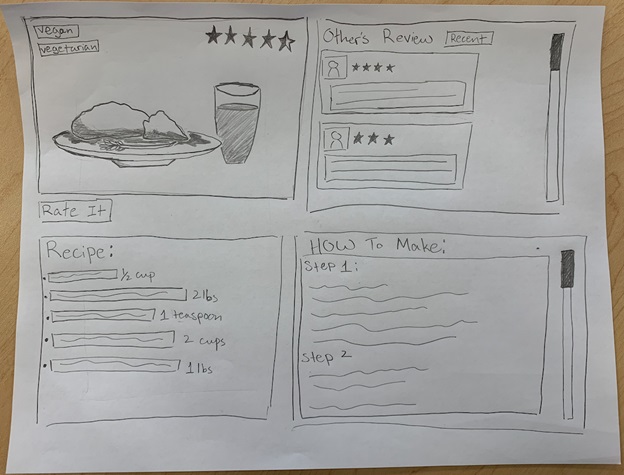 vegan
vegetarian
Other's Review Recent
Rate It
Recipe:
½ cup
2 lbs
1 teaspoon
2 cups
1 lbs
HOW To Make:
Step 1:
Step 2